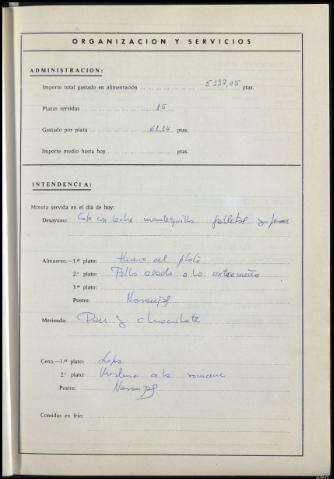 ORGANIZACION Y SERVICIOS
ADMINISTRACION:
Importe total gastado en alimentación 5197,05 ptas.
Plazas servidas 85
Gastado por plaza 61.14 ptas.
Importe medio hasta hoy ptas.
INTENDENCIA:
Minuta servida en el día de hoy:
Desayuno: Cafe con leche mantequilla galletas y
Almuerzo.—1.er plato: Huevo al plato
2.º plato: Pollo asado a la extremeña
3.er plato:
Postre: Naranjas
Merienda: Pan y chocolate
Cena.—1.er plato: Sopa
2.º plato: Merluza a la romana
Postre: Naranjas
Comidas en frío: